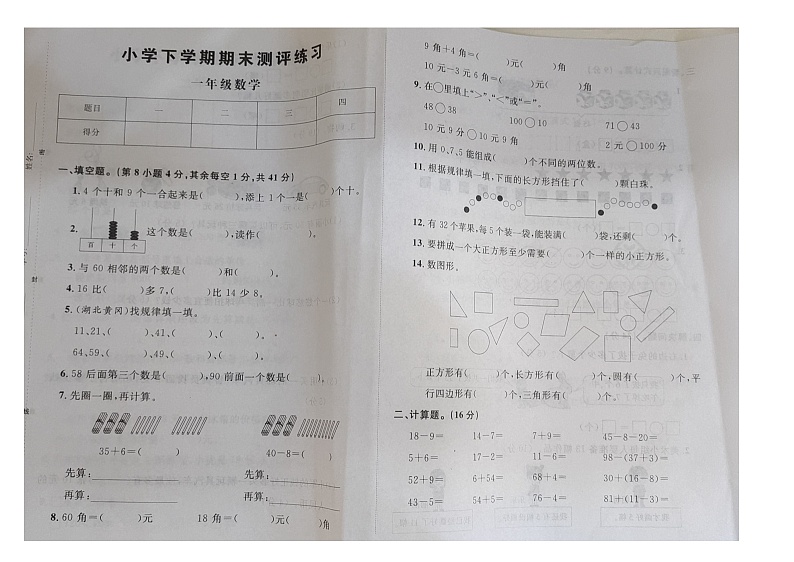 小学下学期期末测评练习
一年级数学
题目 一 二 三 四
得分
一、填空题。(第8小题4分,其余每空1分,共41分)
1. 4个十和9个一合起来是( ),添上1个一是( )个十。
2. 这个数是( ),读作( )。
百 十 个
3. 与60相邻的两个数是( )和( )。
4. 16比( )多7,( )比14少8。
5. (湖北黄冈)找规律填一填。
11、21、( )、41、( )、( )。
64、59、( )、49、( )、( )。
6. 58后面第三个数是( ),90前面一个数是( )。
7. 先圈一圈,再计算。
35+6=( ) 40-8=( )
先算: 先算:
再算: 再算:
8. 60角=( )元 18角=( )元( )角
9角+4角=( )元( )角
10元-3元6角=( )元( )角
9. 在○里填上“>”、“<”或“=”。
48○38 100○10 71○43
10元9分○10元9角 2元○100分
10. 用0、7、5能组成( )个不同的两位数。
11. 根据规律填一填,下面的长方形挡住了( )颗白珠。
12. 有32个苹果,每5个装一袋,能装满( )袋,还剩( )个。
13. 要拼成一个大正方形至少需要( )个一样的小正方形。
14. 数图形。
正方形有( )个,长方形有( )个,圆有( )个,平
行四边形有( )个,三角形有( )个。
二、计算题。(16分)
18-9= 14-7= 7+9= 45-8-20=
5+6= 17-2= 11-6= 98-(37+3)=
52+9= 6+54= 68+4= 30+(16-8)=
43-5= 54+5= 76-4= 81+(11-3)=
姓名:
密
封
线